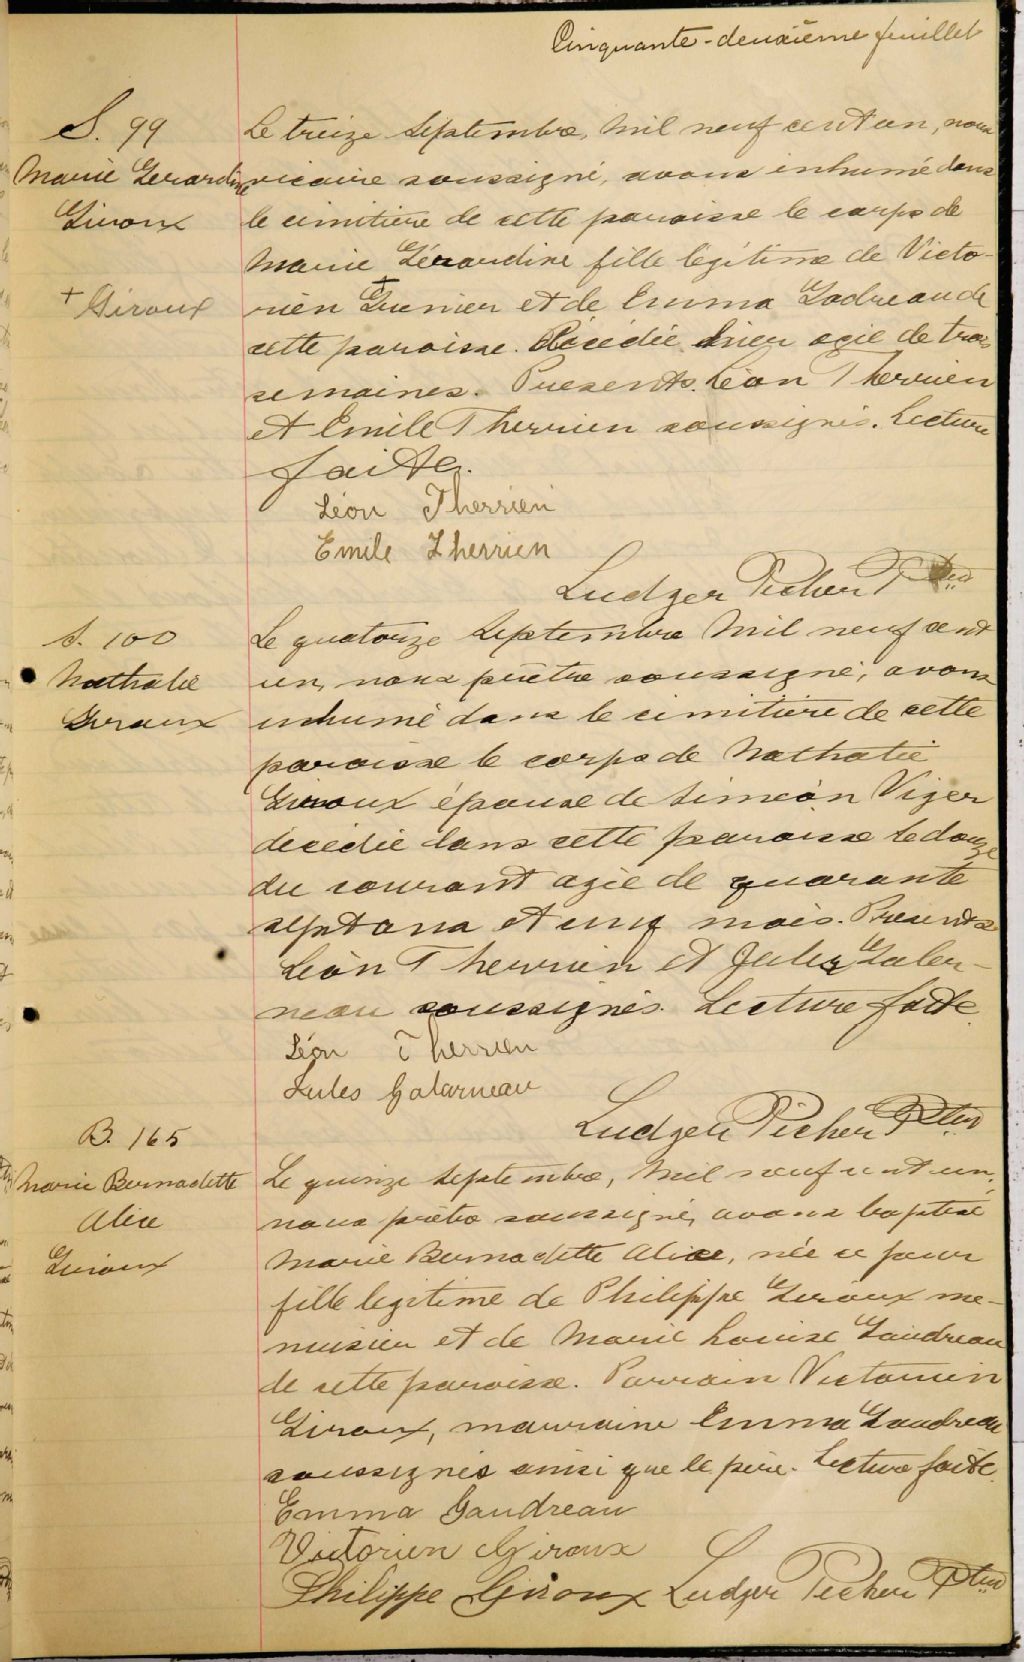 Cinquante-deuxième feuillet
S. 99
Marie Gerardine
Giroux
+ Giroux
Le treize Septembre, mil neuf cent un, nous
vicaire soussigné, avons inhumé dans
le cimitière de cette paroisse le corps de
Marie Gérardine fille légitime de Victo-
rien + Grenier et de Emma Godreau de
cette paroisse. Décédée hier agée de trois
semaines. Presents. Léon Therrien
et Emile Therrien soussignés. Lecture
faite.
Léon Therrien
Emile Therrien
Ludger Picher Ptre
S. 100
Nathalie
Giroux
Le quatorze Septembre mil neuf cent
un, nous prêtre soussigné, avons
inhumé dans le cimitière de cette
paroisse le corps de Nathalie
Giroux épouse de Siméon Viger
décédée dans cette paroisse le douze
du courant agée de quarante
sept ans et cinq mois. Presents
Léon Therrien et Jules Galer-
neau soussignés. Lecture faite.
Léon Therrien
Jules Galarneau
Ludger Picher Ptre
B. 165
Marie Bernadette
Alice
Giroux
Le quinze Septembre, mil neuf cent un,
nous prêtre soussigné, avons baptisé
Marie Bernadette Alice, née ce jour
fille legitime de Philippe Giroux me-
nuisier et de Marie Louise Gaudreau
de cette paroisse. Parrain Victorien
Giroux, marraine Emma Gaudreau
soussignés ainsi que le père. Lecture faite.
Emma Gaudreau
Victorien Giroux
Philippe Giroux Ludger Picher Ptre